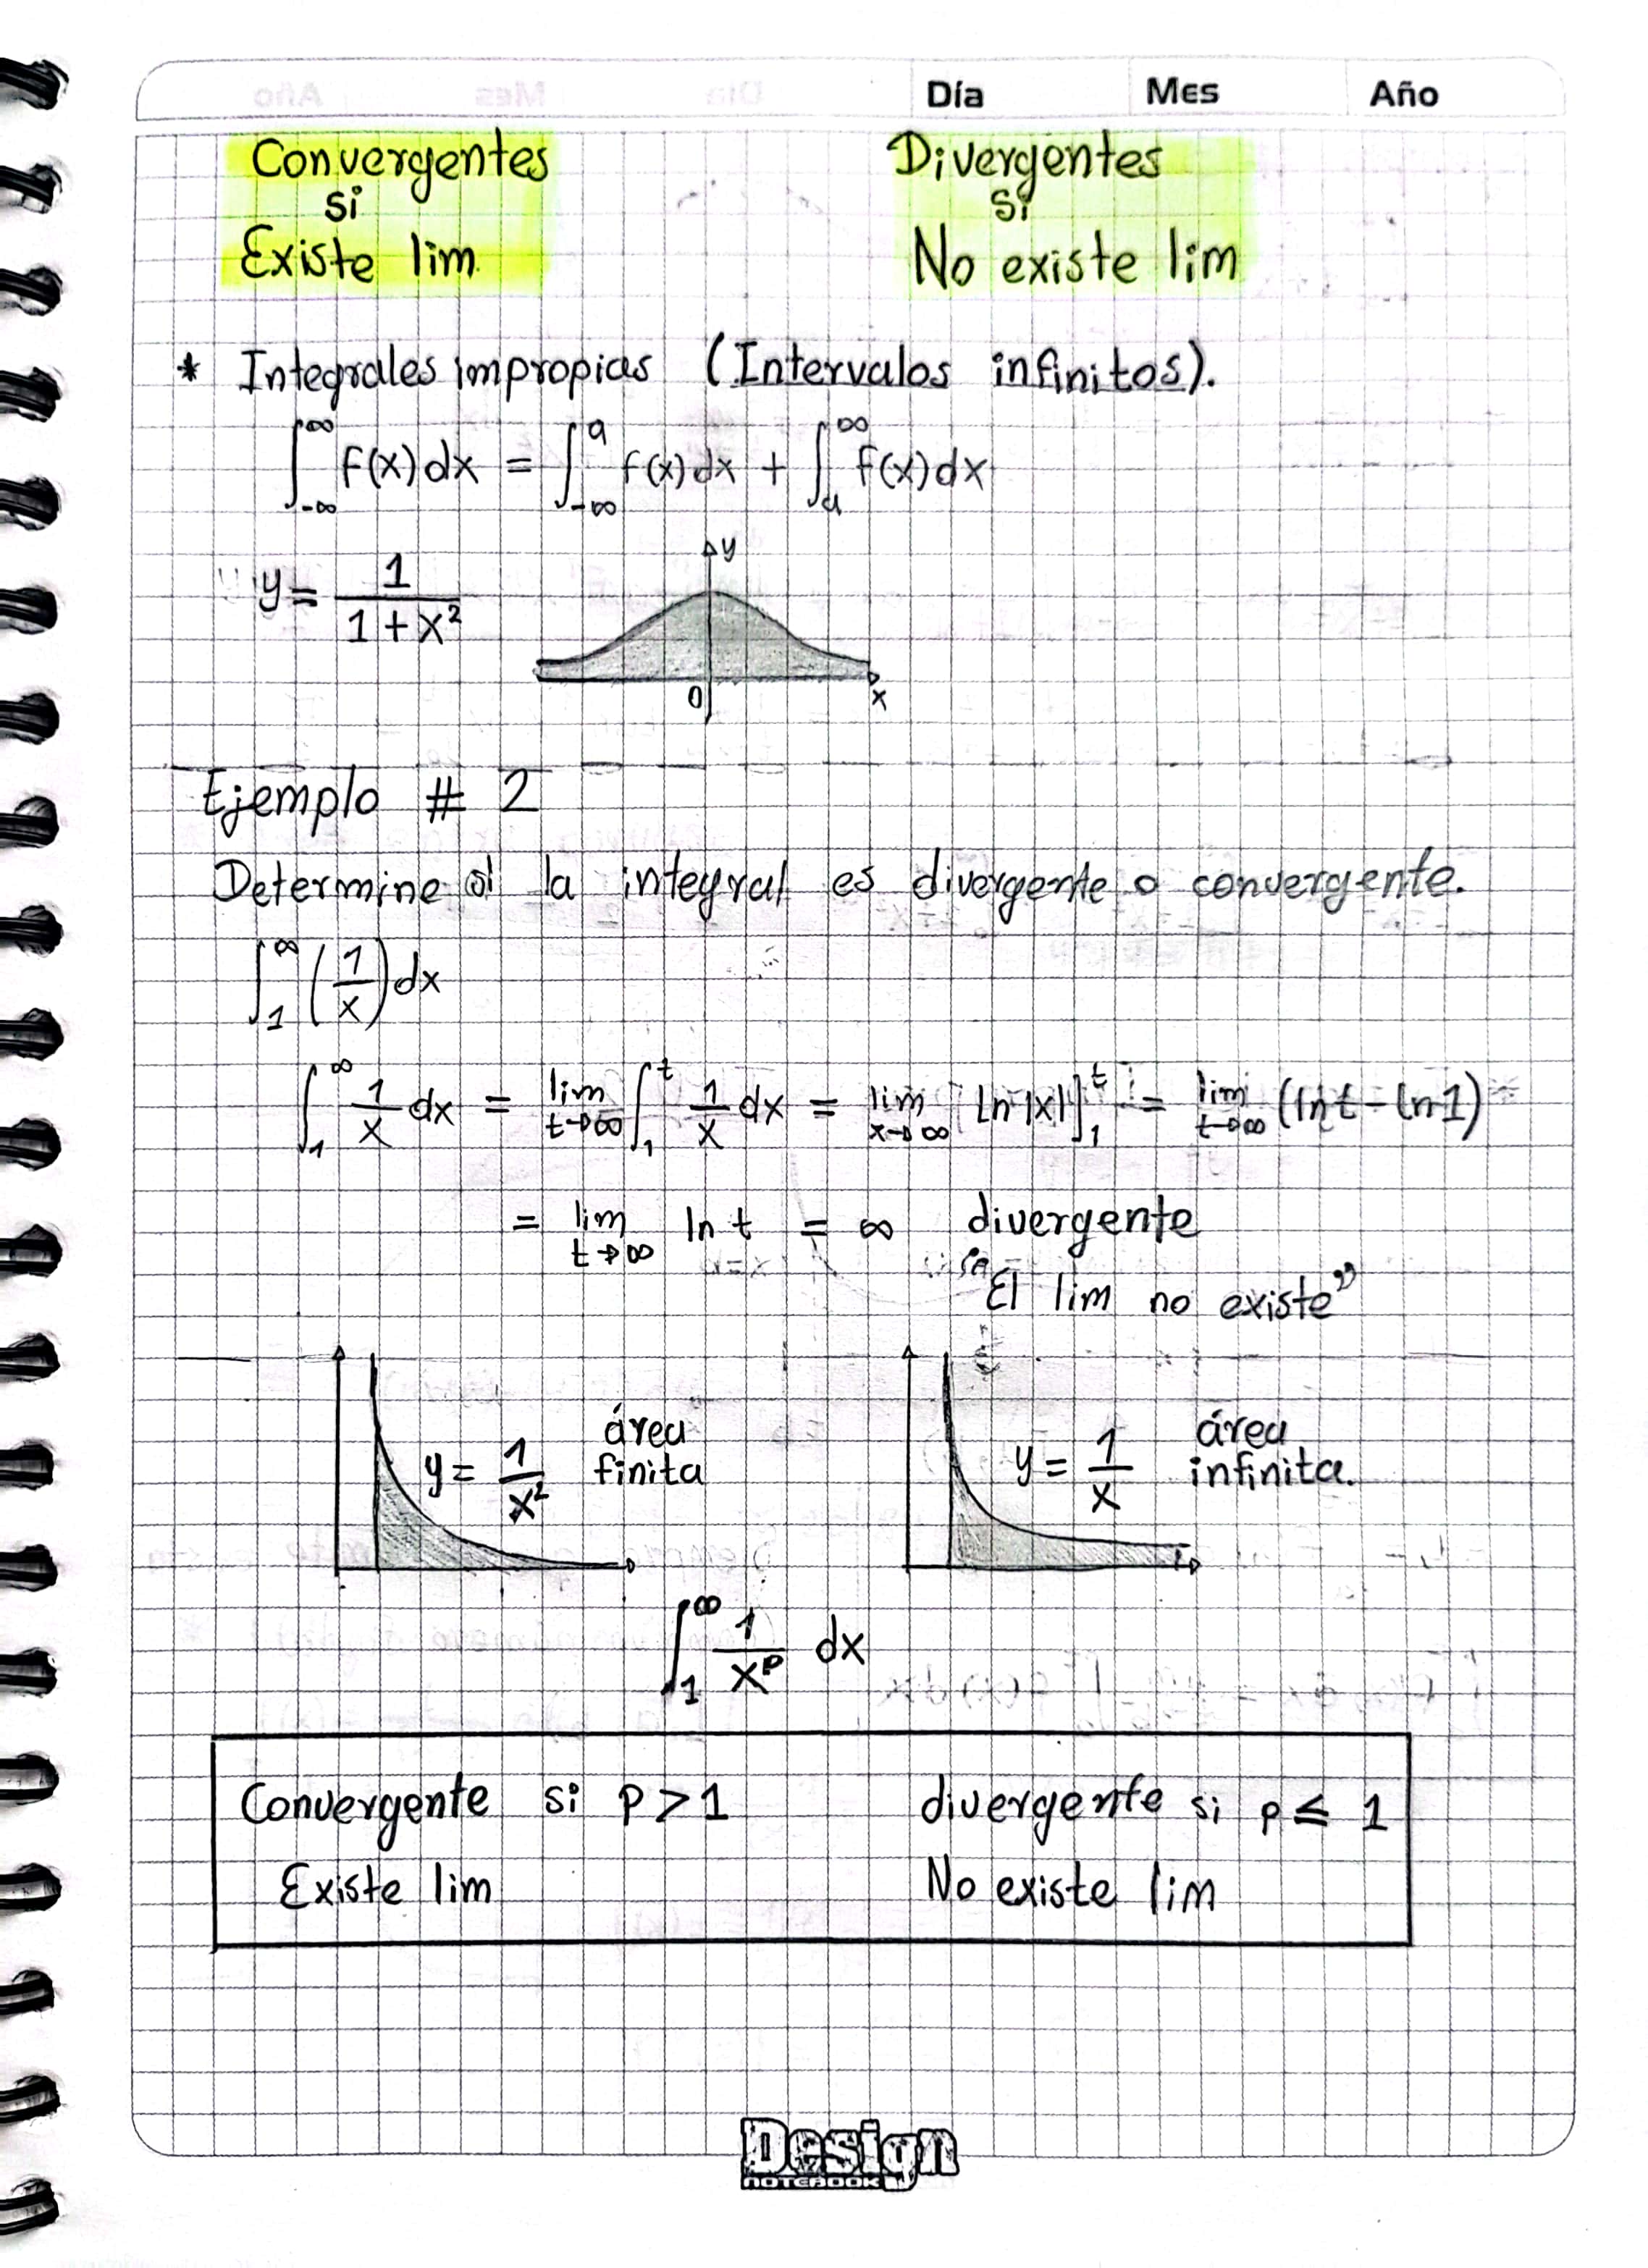 Día Mes Año
Convergentes Divergentes
si si
Existe lim. No existe lim
* Integrales impropias (Intervalos infinitos).
∫_{-∞}^{∞} f(x)dx = ∫_{-∞}^{a} f(x)dx + ∫_{a}^{∞} f(x)dx
y = 1/(1+x²)
y
0 x
Ejemplo # 2
Determine si la integral es divergente o convergente.
∫_{1}^{∞} (1/x) dx
∫_{1}^{∞} 1/x dx = lim_{t→∞} ∫_{1}^{t} 1/x dx = lim_{x→∞} [ln|x|]_{1}^{t} = lim_{t→∞} (ln t - ln 1)
= lim_{t→∞} ln t = ∞ divergente
"El lim no existe"
y = 1/x² área finita
y = 1/x área infinita.
∫_{1}^{∞} 1/x^p dx
Convergente si p > 1 divergente si p ≤ 1
Existe lim No existe lim
Design
NOTEBOOK